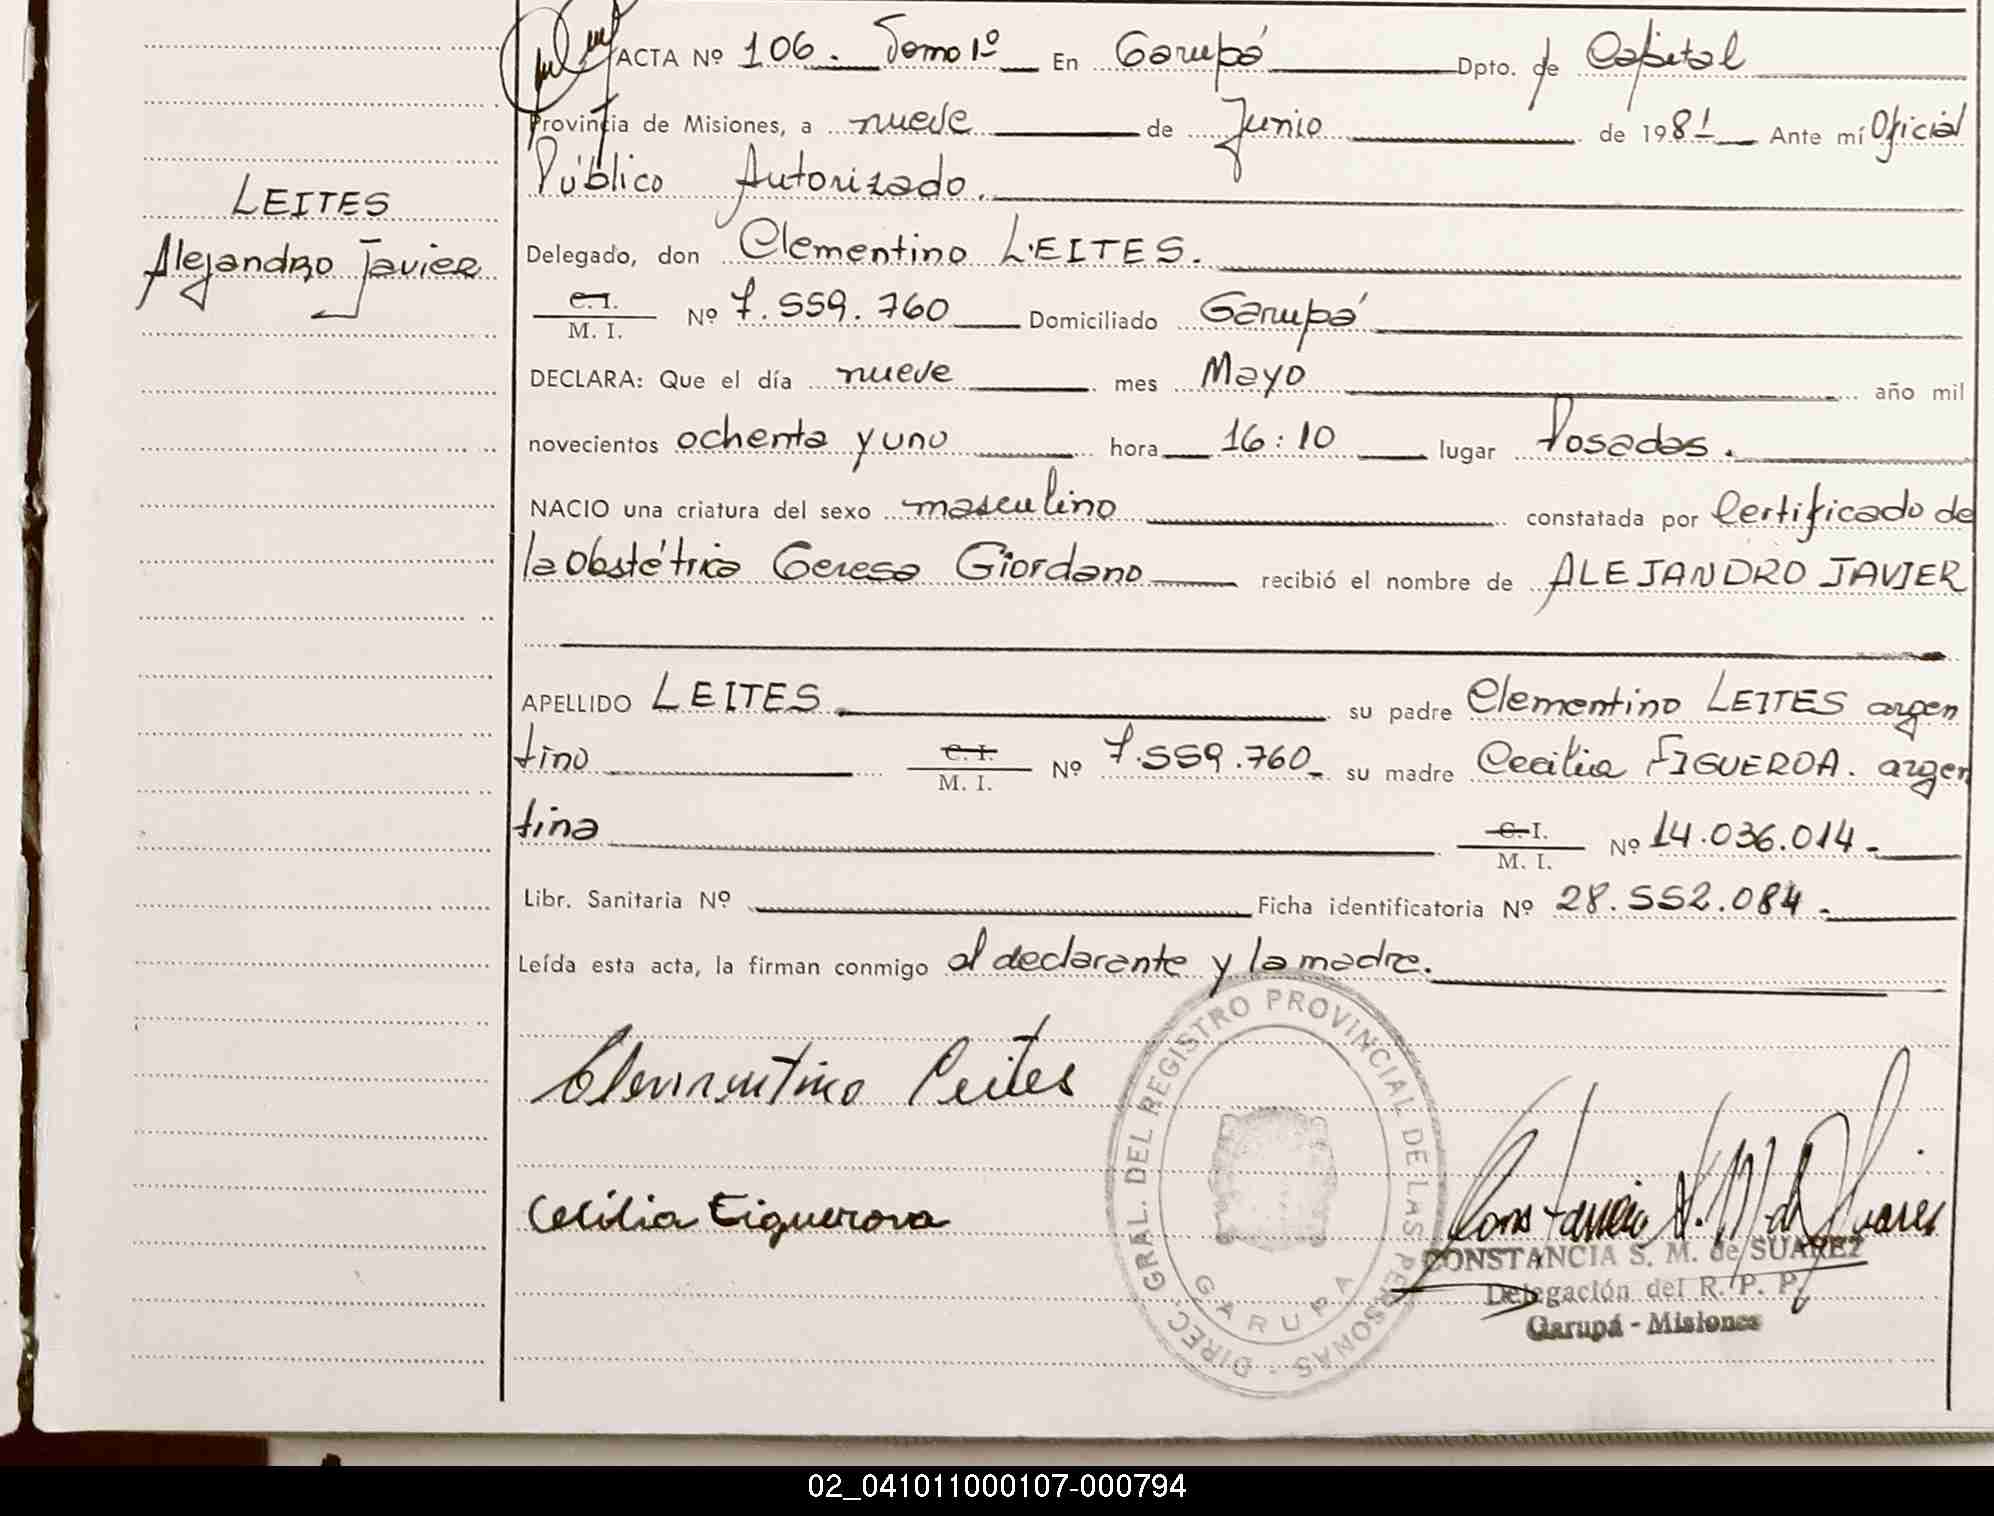 ACTA Nº 106. Tomo 1º En Garupá Dpto. de Capital
Provincia de Misiones, a nueve de Junio de 1981 Ante mí Oficial
Público Autorizado.
LEITES
Alejandro Javier
Delegado, don Clementino LEITES.
C. I.
M. I. Nº 7.559.760 Domiciliado Garupá
DECLARA: Que el día nueve mes Mayo año mil
novecientos ochenta y uno hora 16:10 lugar Posadas.
NACIO una criatura del sexo masculino constatada por Certificado de
la Obstétrica Teresa Giordano recibió el nombre de ALEJANDRO JAVIER
APELLIDO LEITES su padre Clementino LEITES argen
tino C. I. M. I. Nº 7.559.760 su madre Cecilia FIGUEROA. argen
tina C. I. M. I. Nº 14.036.014
Libr. Sanitaria Nº Ficha identificatoria Nº 28.552.084
Leída esta acta, la firman conmigo el declarante y la madre.
Clementino Leites
Cecilia Figuerova
DIREC. GRAL. DEL REGISTRO PROVINCIAL DE LAS PERSONAS
GARUPA
CONSTANCIA S. M. de SUAREZ
Delegación del R. P. P.
Garupá - Misiones
02_041011000107-000794